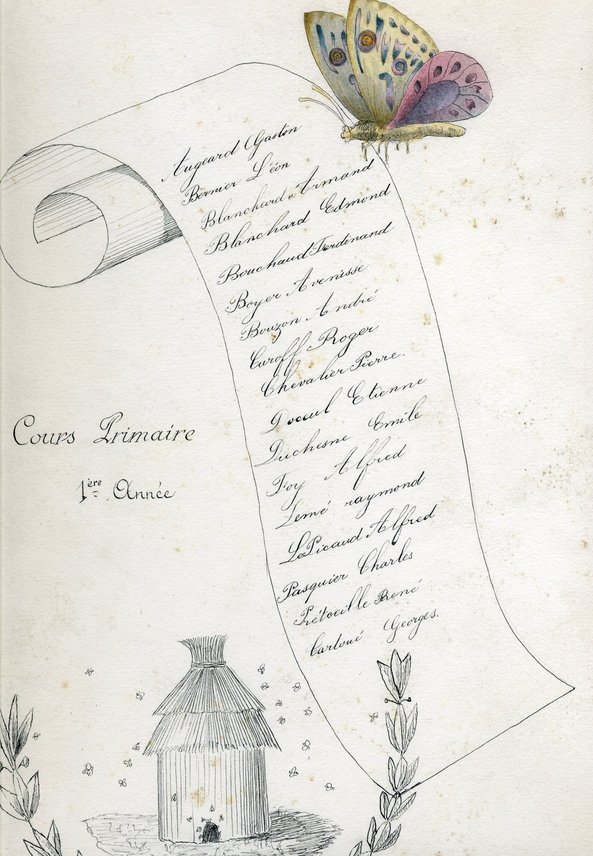 Augeard Gaston
Bernier Léon
Blanchard Armand
Blanchard Edmond
Bouchaud Ferdinand
Boyer Avenisse
Bouzon André
Caroff Roger
Chevalier Pierre.
Doceul Etienne
Duchesne Emile
Foy Alfred
Lemé raymond
LePicaud Alfred
Pasquier Charles
Prétceille René
Cartoué Georges.
Cours Primaire
1ère Année